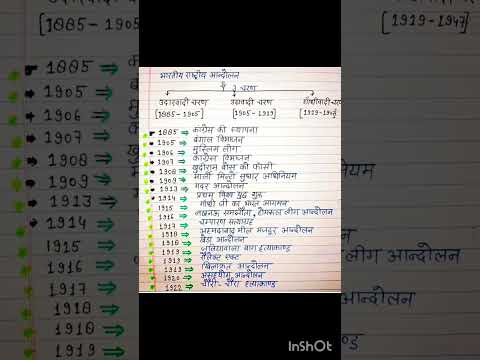 [1885-1905]
1885 ⇒
1905 ⇒
1906 ⇒
1907 ⇒
1908 ⇒
1909 ⇒
1913 ⇒
1914 ⇒
1915 ⇒
1916 ⇒
1917 ⇒
1918 ⇒
1918 ⇒
1919 ⇒
भारतीय राष्ट्रीय आन्दोलन
3 चरण
उदारवादी चरण उग्रवादी चरण गाँधीवादी चरण
[1885-1905] [1905-1919] [1919-1947]
1885 ⇒ कांग्रेस की स्थापना
1905 ⇒ बंगाल विभाजन
1906 ⇒ मुस्लिम लीग
1907 ⇒ कांग्रेस विभाजन
1908 ⇒ खुदीराम बोस को फाँसी
1909 ⇒ मार्ले मिन्टो सुधार अधिनियम
1913 ⇒ गदर आन्दोलन
1914 ⇒ प्रथम विश्व युद्ध शुरू
1915 ⇒ गाँधी जी का भारत आगमन
1916 ⇒ लखनऊ समझौता, होमरूल लीग आन्दोलन
1917 ⇒ चम्पारण सत्याग्रह
1918 ⇒ अहमदाबाद मील मजदूर आन्दोलन
1918 ⇒ खेड़ा आन्दोलन
1919 ⇒ जलियावाला बाग हत्याकाण्ड
1919 ⇒ रौलेक्ट एक्ट
1919 ⇒ खिलाफत आन्दोलन
1920 ⇒ असहयोग आन्दोलन
1922 ⇒ चौरी-चौरा हत्याकाण्ड
[1919-1947]
लीग आन्दोलन
न्दोलन
InShOt